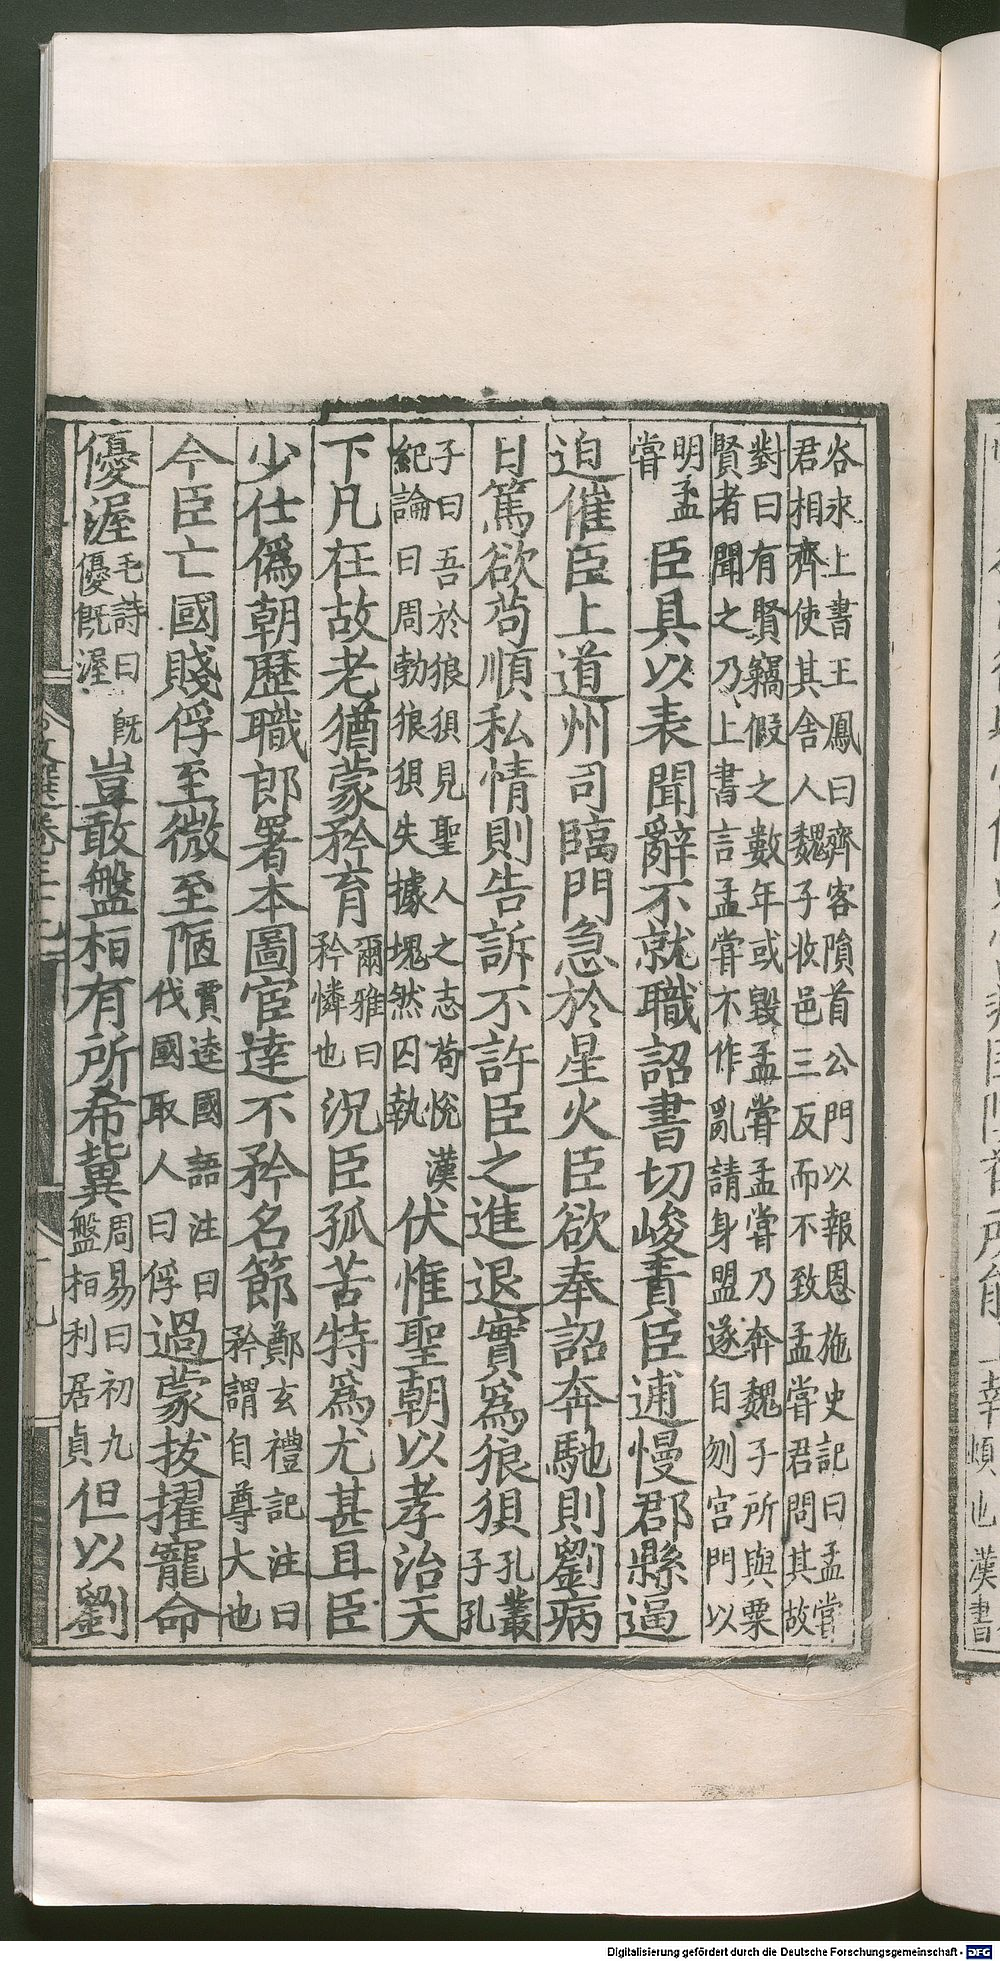 谷永上書王鳳曰齊客隕首公門以報恩施史記曰孟嘗
君相齊使其舎人魏子收邑三反而不致孟嘗君問其故
對曰有賢竊假之數年或毀孟嘗孟嘗乃奔魏子所與粟
賢者聞之乃上書言孟嘗不作亂請身盟遂自刎宮門以
明孟
嘗
臣具以表聞辭不就職詔書切峻責臣逋慢郡縣逼
迫催臣上道州司臨門急於星火臣欲奉詔奔馳則劉病
日篤欲苟順私情則告訴不許臣之進退實爲狼狽
孔叢
子孔
子曰吾於狼狽見聖人之志荀恱漢
紀論曰周勃狼狽失據塊然囚執
伏惟聖朝以孝治天
下凡在故老猶蒙矜育
爾雅曰
矜憐也
況臣孤苦特爲尤甚且臣
少仕僞朝歷職郎署本圖宦達不矜名節
鄭玄禮記注曰
矜謂自尊大也
今臣亡國賤俘至微至陋
賈逵國語注曰
伐國取人曰俘
過蒙拔擢寵命
優渥
毛詩曰旣
優旣渥
豈敢盤桓有所希冀
周易曰初九
盤桓利居貞
但以劉
文選卷三十七
十九
Digitalisierung gefördert durch die Deutsche Forschungsgemeinschaft - DFG